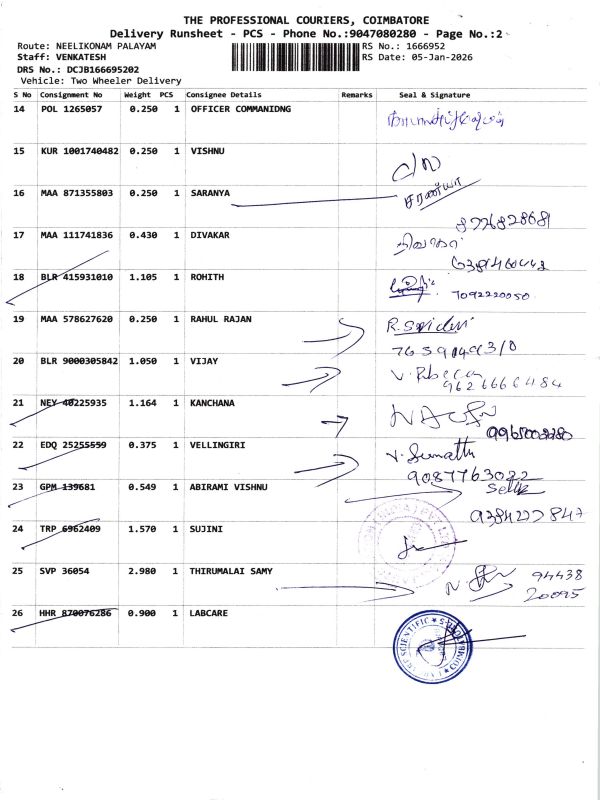 THE PROFESSIONAL COURIERS, COIMBATORE
Delivery Runsheet - PCS - Phone No.:9047080280 - Page No.:2
Route: NEELIKONAM PALAYAM RS No.: 1666952
Staff: VENKATESH RS Date: 05-Jan-2026
DRS No.: DCJB166695202
Vehicle: Two Wheeler Delivery
S No Consignment No Weight PCS Consignee Details Remarks Seal & Signature
14 POL 1265057 0.250 1 OFFICER COMMANIDNG
15 KUR 1001740482 0.250 1 VISHNU
16 MAA 871355803 0.250 1 SARANYA சரண்யா
8726828681
17 MAA 111741836 0.430 1 DIVAKAR
18 BLR 415931010 1.105 1 ROHITH 7092220050
19 MAA 578627620 0.250 1 RAHUL RAJAN R. Sridevi
7659049310
20 BLR 9000305842 1.050 1 VIJAY V. Rebecca
9626666484
21 NEY 40225935 1.164 1 KANCHANA
9965002280
22 EDQ 25255559 0.375 1 VELLINGIRI V. Sumathi
9087763022
23 GPM 139681 0.549 1 ABIRAMI VISHNU
9384227847
24 TRP 6962409 1.570 1 SUJINI
25 SVP 36054 2.980 1 THIRUMALAI SAMY 94438
20095
26 HHR 870076286 0.900 1 LABCARE